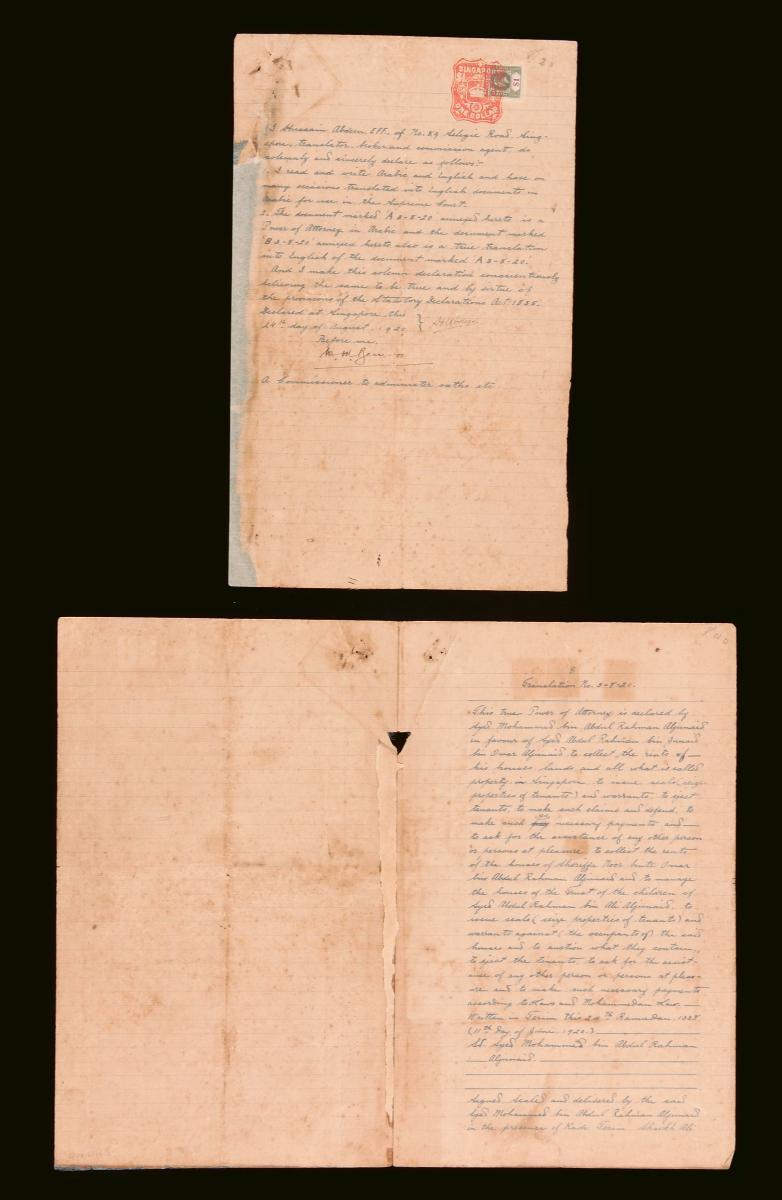 SINGAPORE
$1
ONE DOLLAR
$1
I Hussain Abdeen Eff. of No. 89 Selegie Road, Sing-
apore, translator, broker and commission agent do
solemnly and sincerely declare as follows:-
I read and write Arabic and English and have on
many occasions translated into English documents in
Arabic for use in the Supreme Court.
2. The document marked 'A 3-8-20' annexed hereto is a
Power of Attorney in Arabic and the document marked
'B 3-8-20' annexed hereto also is a true translation
into English of the document marked 'A 3-8-20'.
And I make this solemn declaration conscientiously
believing the same to be true and by virtue of
the provisions of the Statutory Declarations Act 1835.
Declared at Singapore this
24th day of August, 1920
Before me,
A Commissioner to administer oaths etc
B
Translation No. 3-8-20.
This true Power of Attorney is declared by
Syed Mohammed bin Abdul Rahman Aljunaid
in favour of Syed Abdul Rahman bin Junaid
bin Omar Aljunaid to collect the rents of
his houses, lands and all what is called
property in Singapore, to issue seals (seize
properties of tenants) and warrants, to eject
tenants, to make such claims and defend, to
make such necessary payments and
to ask for the assistance of any other person
or persons at pleasure, to collect the rents
of the houses of Shariffa Noor binte Omar
bin Abdul Rahman Aljunaid and to manage
the houses of the Trust of the children of
Syed Abdul Rahman bin Ali Aljunaid, to
issue seals (seize properties of tenants) and
warrants against (the occupants of) the said
houses and to auction what they contain,
to eject the tenants, to ask for the assist-
ance of any other person or persons at pleas-
ure and to make such necessary payments
according to Laws and Mohammedan Law.
Written in Terim this 24th Ramadan, 1338
(11th Day of June, 1920.)
Sd. Syed Mohammed bin Abdul Rahman
Aljunaid.
Signed, sealed and delivered by the said
Syed Mohammed bin Abdul Rahman Aljunaid
in the presence of Kadi Terim Shaikh Ali